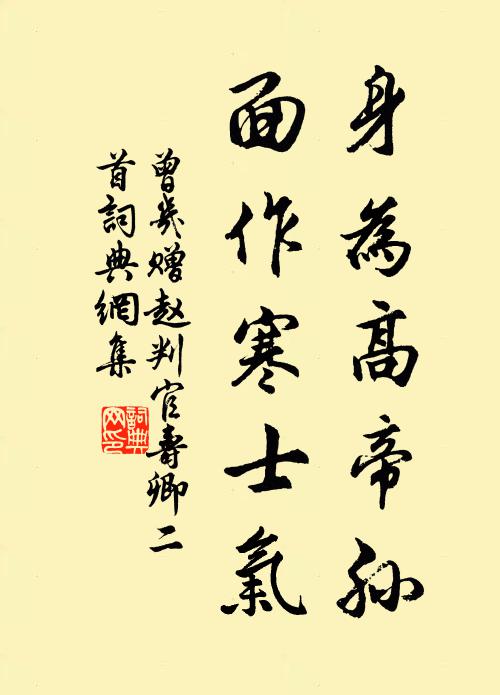 身為高帝孫
面作寒士氣
曾幾贈赵判官壽卿二
首詞典網集
詞典网印